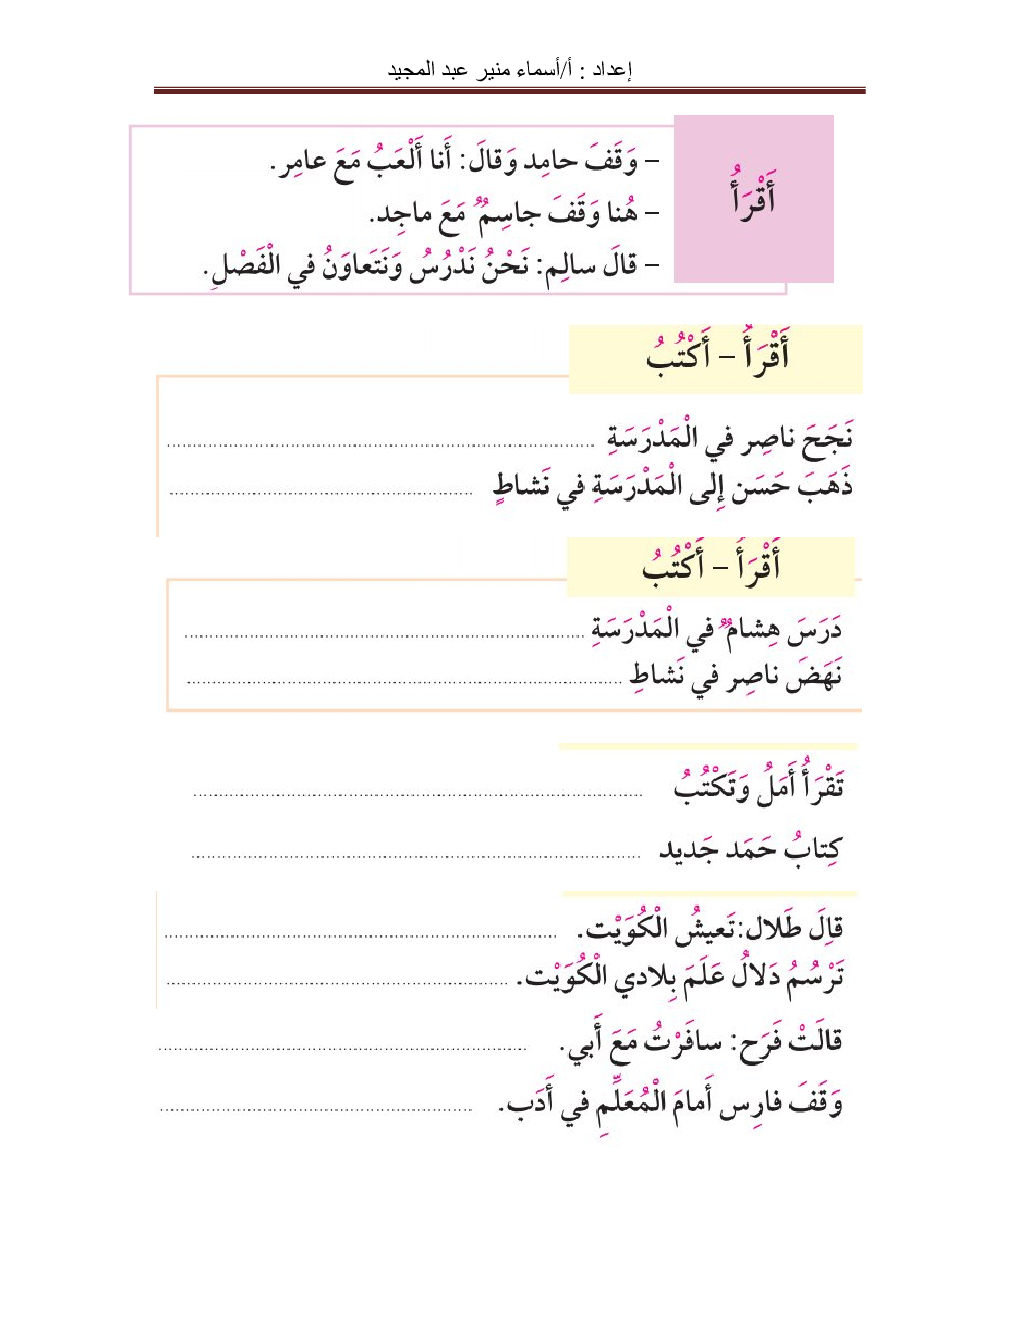 إعداد : أ/أسماء منير عبد المجيد
أَقْرَأُ
– وَقَفَ حامِد وَقالَ: أَنا أَلْعَبُ مَعَ عامِر.
– هُنا وَقَفَ جاسِمٌ مَعَ ماجِد.
– قالَ سالِم: نَحْنُ نَدْرُسُ وَنَتَعاوَنُ في الْفَصْلِ.
أَقْرَأُ – أَكْتُبُ
نَجَحَ ناصِر في الْمَدْرَسَةِ ................
ذَهَبَ حَسَن إِلى الْمَدْرَسَةِ في نَشاطٍ ................
أَقْرَأُ – أَكْتُبُ
دَرَسَ هِشامٌ في الْمَدْرَسَةِ ................
نَهَضَ ناصِر في نَشاطِ ................
تَقْرَأُ أَمَلُ وَتَكْتُبُ ................
كِتابُ حَمَد جَديد ................
قالَ طَلال:تَعيشُ الْكُوَيْت. ................
تَرْسُمُ دَلالُ عَلَمَ بِلادي الْكُوَيْت. ................
قالَتْ فَرَح: سافَرْتُ مَعَ أَبي. ................
وَقَفَ فارِس أَمامَ الْمُعَلِّمِ في أَدَب. ................